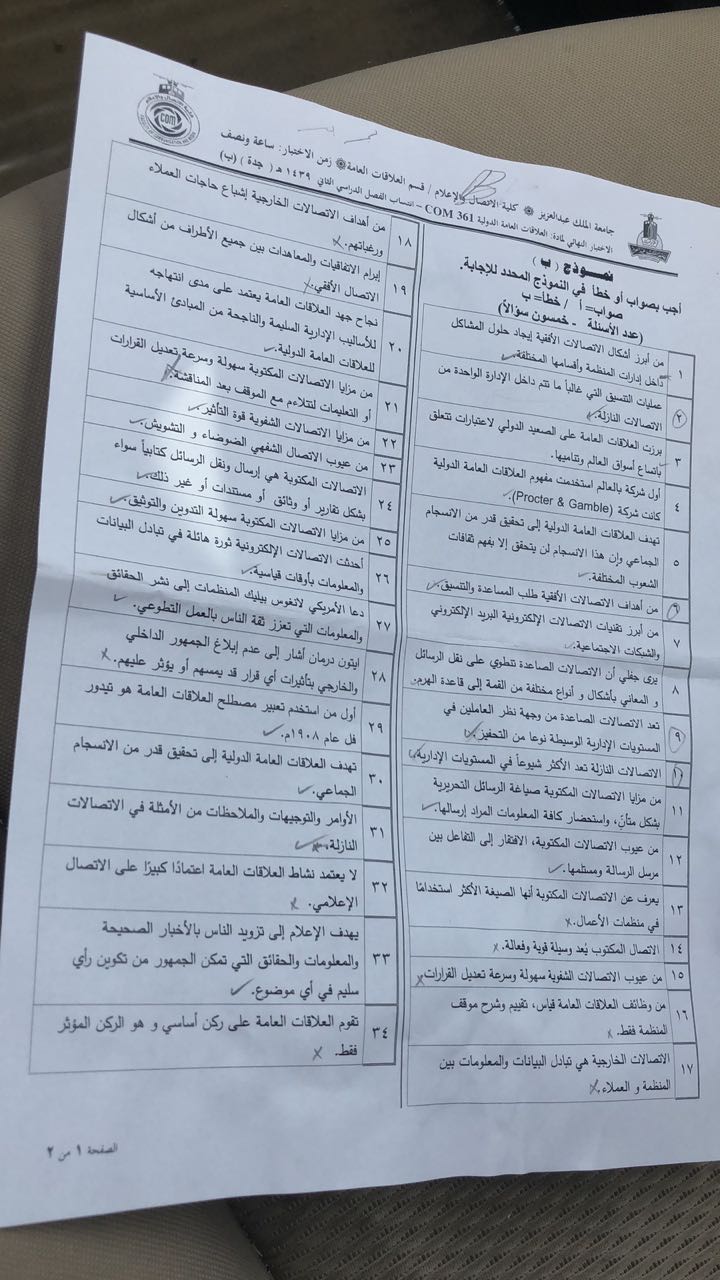 جامعة الملك عبدالعزيز ❁ كلية الاتصال والإعلام / قسم العلاقات العامة ❁ زمن الاختبار: ساعة ونصف
الاختبار النهائي لمادة: العلاقات العامة الدولية COM 361 – انتساب الفصل الدراسي الثاني ١٤٣٩ هـ ( جدة ) (ب)
COM
نمـــوذج ( ب )
أجب بصواب أو خطأ في النموذج المحدد للإجابة.
صواب= أ / خطأ= ب
(عدد الأسئلة - خمسون سؤالاً)
١ من أبرز أشكال الاتصالات الأفقية إيجاد حلول المشاكل
داخل إدارات المنظمة وأقسامها المختلفة.
٢ عمليات التنسيق التي غالباً ما تتم داخل الإدارة الواحدة من
الاتصالات النازلة.
٣ برزت العلاقات العامة على الصعيد الدولي لاعتبارات تتعلق
باتساع أسواق العالم وتناميها.
٤ أول شركة بالعالم استخدمت مفهوم العلاقات العامة الدولية
كانت شركة (Procter & Gamble).
٥ تهدف العلاقات العامة الدولية إلى تحقيق قدر من الانسجام
الجماعي وإن هذا الانسجام لن يتحقق إلا بفهم ثقافات
الشعوب المختلفة.
٦ من أهداف الاتصالات الأفقية طلب المساعدة والتنسيق.
٧ من أبرز تقنيات الاتصالات الإلكترونية البريد الإلكتروني
والشبكات الاجتماعية.
٨ يرى جفلي أن الاتصالات الصاعدة تنطوي على نقل الرسائل
و المعاني بأشكال و أنواع مختلفة من القمة إلى قاعدة الهرم.
٩ تعد الاتصالات الصاعدة من وجهة نظر العاملين في
المستويات الإدارية الوسيطة نوعا من التحفيز.
١٠ الاتصالات النازلة تعد الأكثر شيوعاً في المستويات الإدارية.
١١ من مزايا الاتصالات المكتوبة صياغة الرسائل التحريرية
بشكل متأنٍ، واستحضار كافة المعلومات المراد إرسالها.
١٢ من عيوب الاتصالات المكتوبة، الافتقار إلى التفاعل بين
مرسل الرسالة ومستلمها.
١٣ يعرف عن الاتصالات المكتوبة أنها الصيغة الأكثر استخدامًا
في منظمات الأعمال.
١٤ الاتصال المكتوب يُعد وسيلة قوية وفعالة.
١٥ من عيوب الاتصالات الشفوية سهولة وسرعة تعديل القرارات
١٦ من وظائف العلاقات العامة قياس، تقييم وشرح موقف
المنظمة فقط.
١٧ الاتصالات الخارجية هي تبادل البيانات والمعلومات بين
المنظمة و العملاء.
١٨ من أهداف الاتصالات الخارجية إشباع حاجات العملاء
ورغباتهم.
١٩ إبرام الاتفاقيات والمعاهدات بين جميع الأطراف من أشكال
الاتصال الأفقي.
٢٠ نجاح جهد العلاقات العامة يعتمد على مدى انتهاجه
للأساليب الإدارية السليمة والناجحة من المبادئ الأساسية
للعلاقات العامة الدولية.
٢١ من مزايا الاتصالات المكتوبة سهولة وسرعة تعديل القرارات
أو التعليمات لتتلاءم مع الموقف بعد المناقشة.
٢٢ من مزايا الاتصالات الشفوية قوة التأثير.
٢٣ من عيوب الاتصال الشفهي الضوضاء و التشويش.
٢٤ الاتصالات المكتوبة هي إرسال ونقل الرسائل كتابياً سواء
بشكل تقارير أو وثائق أو مستندات أو غير ذلك.
٢٥ من مزايا الاتصالات المكتوبة سهولة التدوين والتوثيق.
٢٦ أحدثت الاتصالات الإلكترونية ثورة هائلة في تبادل البيانات
والمعلومات بأوقات قياسية.
٢٧ دعا الأمريكي لانغوس بيليك المنظمات إلى نشر الحقائق
والمعلومات التي تعزز ثقة الناس بالعمل التطوعي.
٢٨ ايتون درمان أشار إلى عدم إبلاغ الجمهور الداخلي
والخارجي بتأثيرات أي قرار قد يمسهم أو يؤثر عليهم.
٢٩ أول من استخدم تعبير مصطلح العلاقات العامة هو تيدور
فل عام ١٩٠٨م.
٣٠ تهدف العلاقات العامة الدولية إلى تحقيق قدر من الانسجام
الجماعي.
٣١ الأوامر والتوجيهات والملاحظات من الأمثلة في الاتصالات
النازلة.
٣٢ لا يعتمد نشاط العلاقات العامة اعتمادًا كبيرًا على الاتصال
الإعلامي.
٣٣ يهدف الإعلام إلى تزويد الناس بالأخبار الصحيحة
والمعلومات والحقائق التي تمكن الجمهور من تكوين رأي
سليم في أي موضوع.
٣٤ تقوم العلاقات العامة على ركن أساسي و هو الركن المؤثر
فقط.
الصفحة ١ من ٢